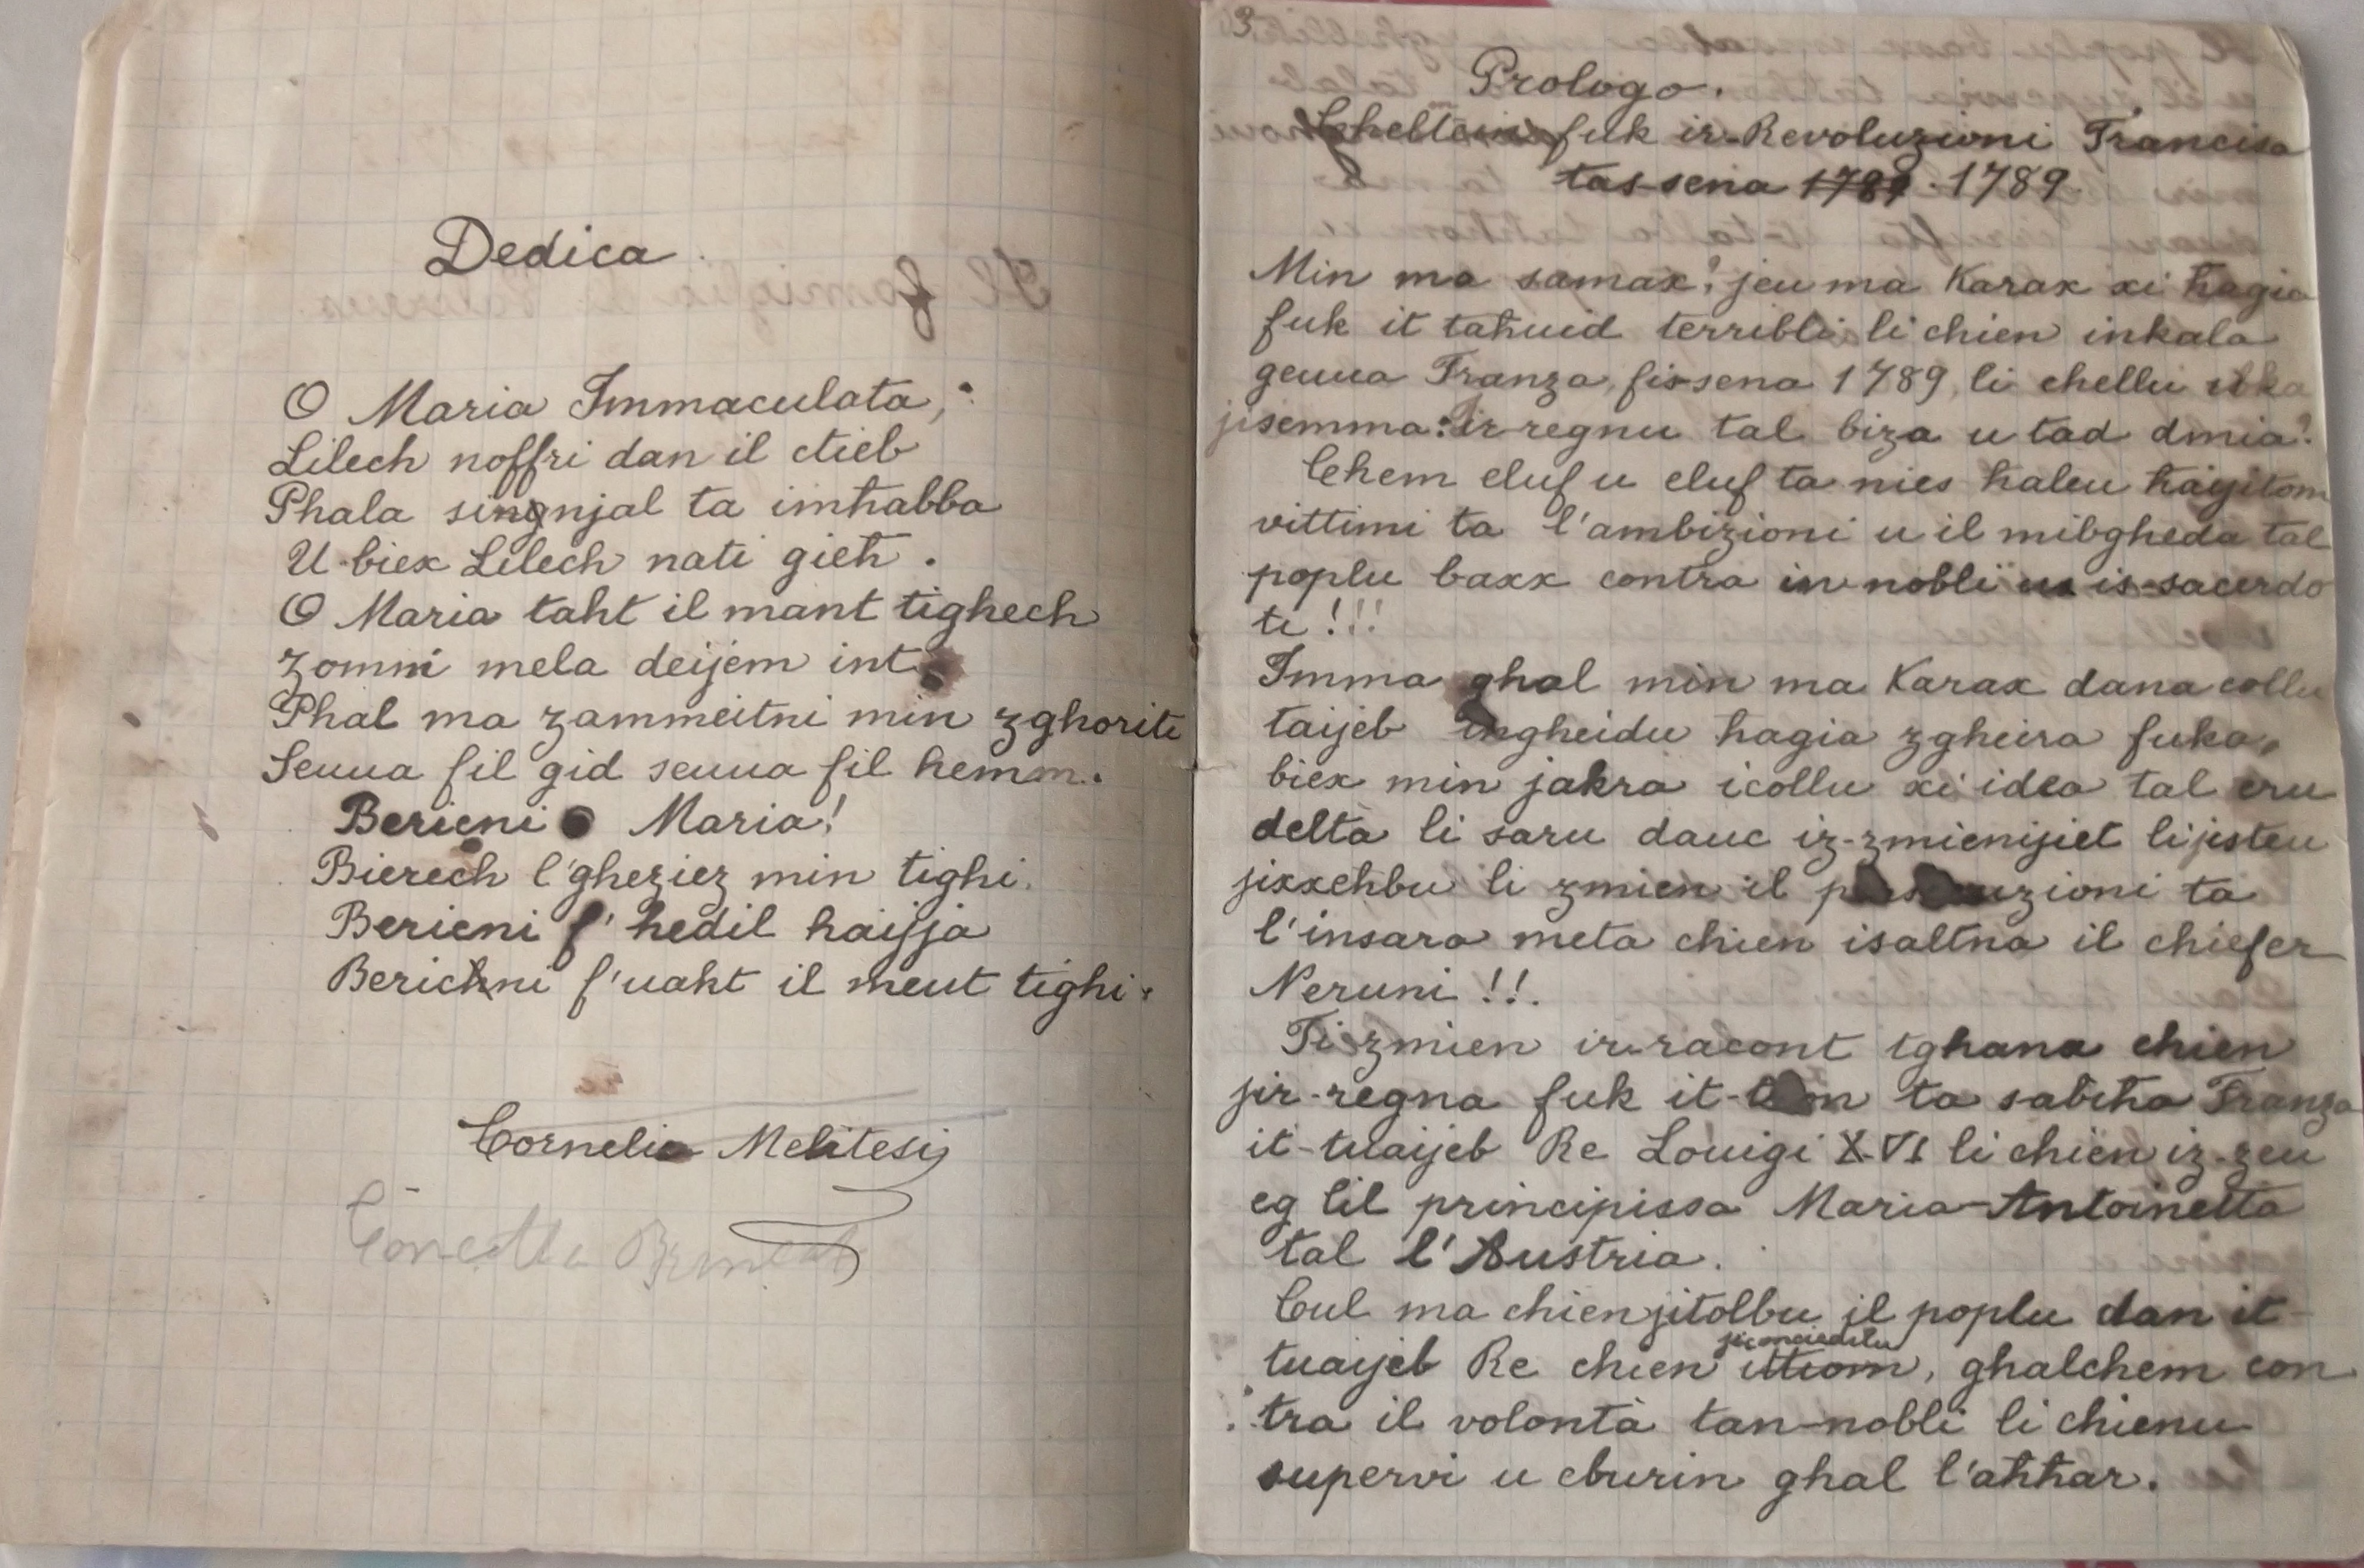 Dedica
O Maria Immaculata,
Lilech noffri dan il ctieb
Ghala singnjal ta imħabba
U biex Lilech nati gieħ.
O Maria taht il mant tighech
zommi mela deijem int
Ghal ma zammeitni min zghoriti
Seuua fil gid seuua fil hemm.
Berieni O Maria!
Bierech l'gheziez min tighi.
Berieni f' hedil haijja
Berichni f'uaħt il meut tighi.
Cornelia Melitesi
3
Prologo.
Cheltein fuk ir-Revoluzioni Francisa
tas-sena 1789. 1789
Min ma samax? jeu ma Karax xi ħagia
fuk it taħuid terribli li chien inkala
geuua Franza, fis-sena 1789, li chellu
jisemma: ir-regnu tal biza u tad dmia?
Chem eluf u eluf ta nies ħaleu ħajjitom
vittimi ta l'ambizioni u il mibgheda tal
poplu baxx contra in nobli u is-sacerdo
ti!!!
Imma ghal min ma Karax dana collu
taijeb ingheidu ħagia zgheira fuka,
biex min jakra icollu xi idea tal cru
deltà li saru dauc iz-zmienijiet li jisteu
jixxehbu li zmien il ta
l'insara meta chien isaltna il chiefer
Neruni!!.
Fi zmien ir-racont tghana chien
jir-regna fuk it-tron ta sabiħa Franza
it-tuaijeb Re Louigi X-VI li chien iz-zeu
eg lil principissa Maria-Antoinetta
tal l'Austria.
Cul ma chien jitolbu il poplu dan it-
tuaijeb Re chien jiconciedilu ittiom, ghalchem con
tra il volontà tan-nobli li chienu
supervi u cburin ghal l'aħħar.